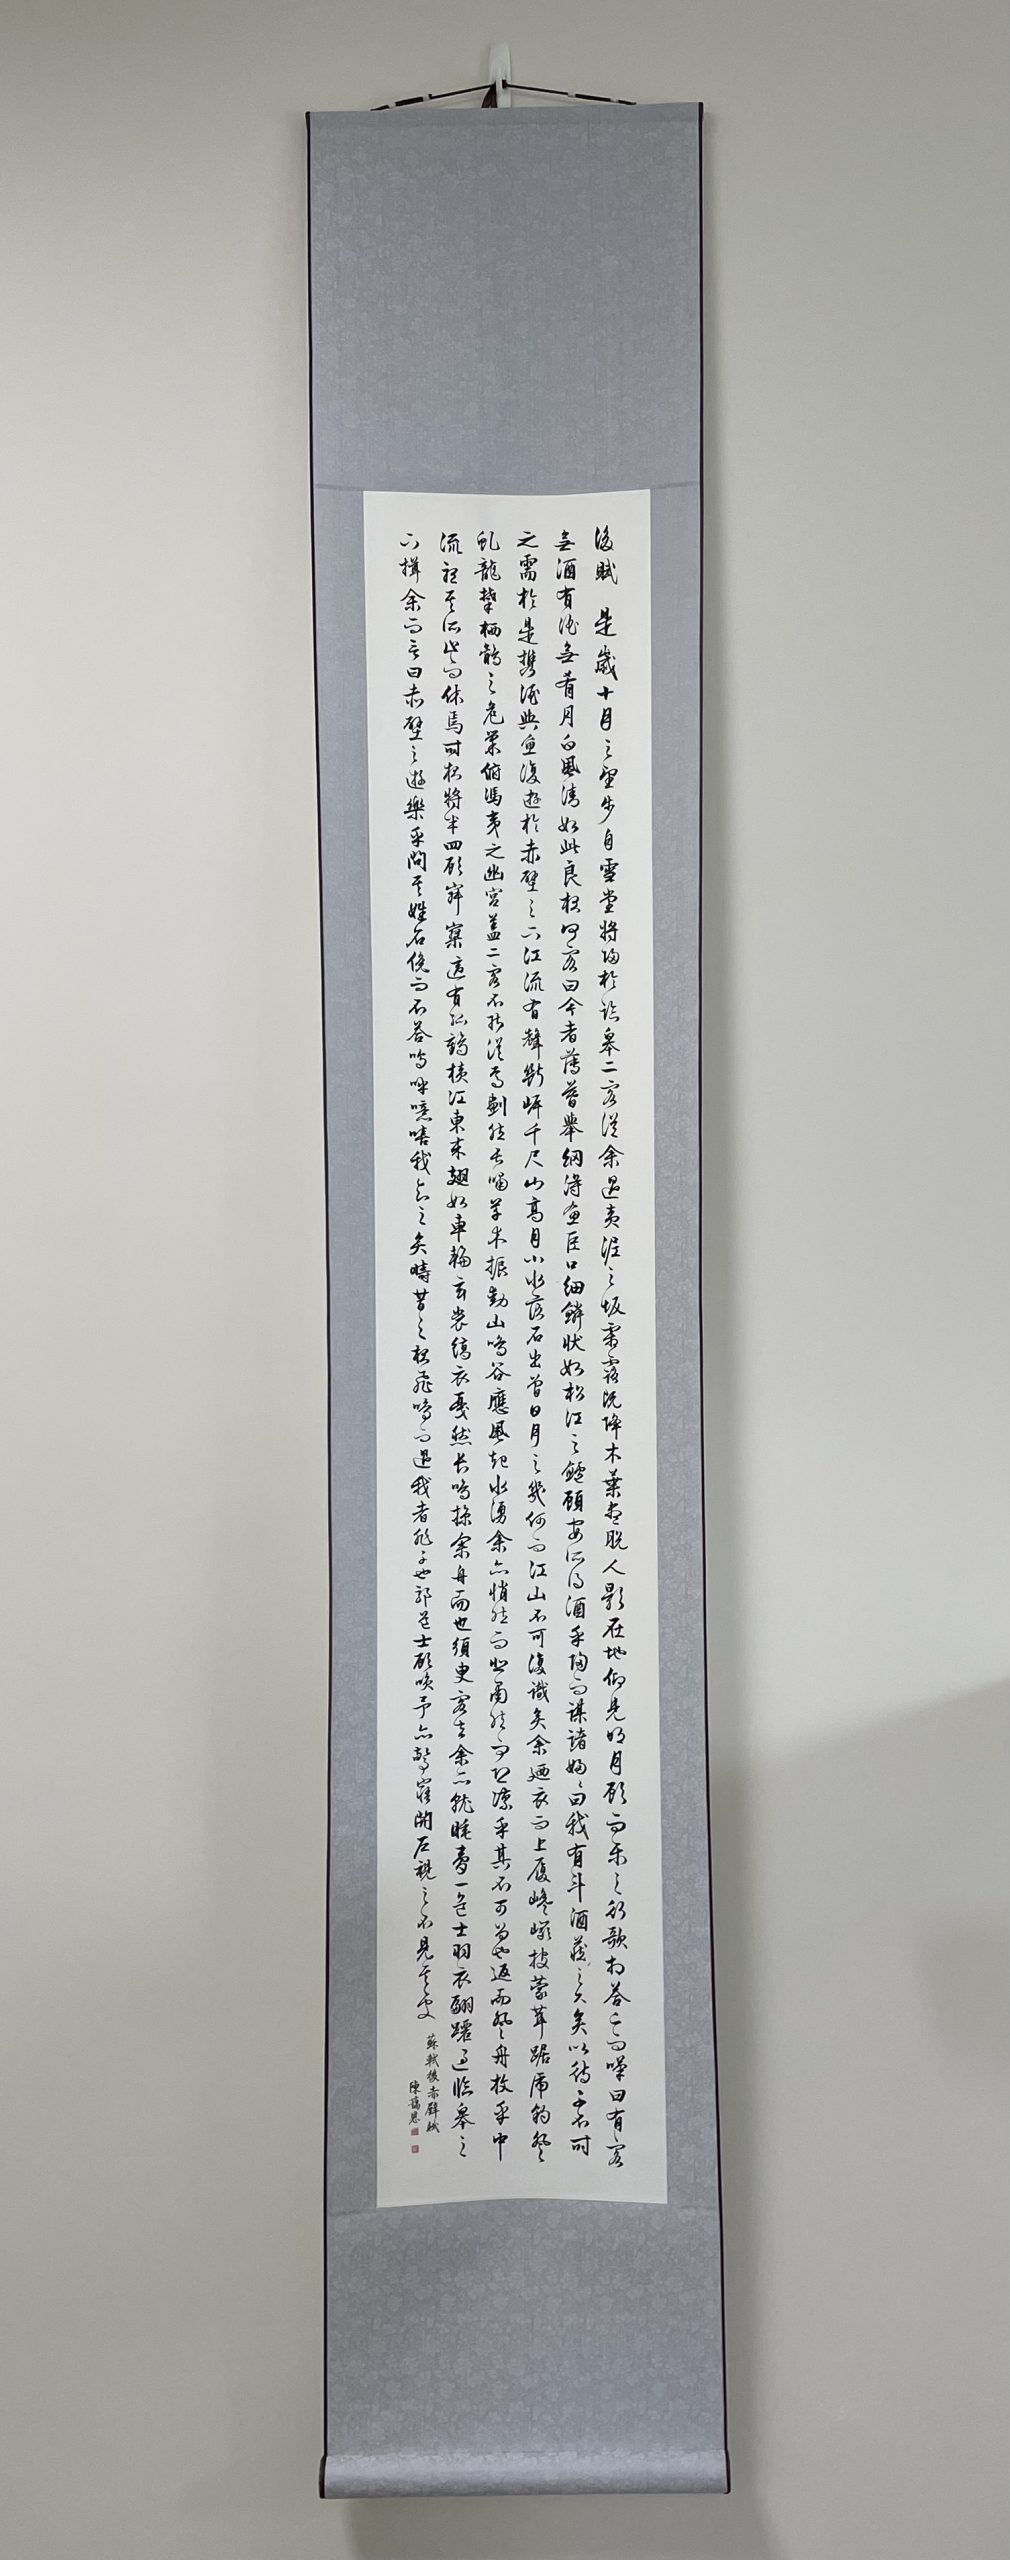 後賦 是歲十月之望步自雪堂將歸於臨皋二客從余過黃泥之坂霜露既降木葉盡脫人影在地仰見明月顧而樂之行歌相答已而嘆曰有客
無酒有酒無肴月白風清如此良夜何客曰今者薄暮舉網得魚巨口細鱗狀如松江之鱸顧安所得酒乎歸而謀諸婦婦曰我有斗酒藏之久矣以待子不時
之需於是攜酒與魚復遊於赤壁之下江流有聲斷岸千尺山高月小水落石出曾日月之幾何而江山不可復識矣余廼衣而上履巉巖披蒙茸踞虎豹登
虬龍攀栖鶻之危巢俯馮夷之幽宮蓋二客不能從焉劃然長嘯草木振動山鳴谷應風起水湧余亦悄然而悲肅然而恐凜乎其不可留也返而登舟放乎中
流聽其所止而休焉時夜將半四顧寂寥適有孤鶴橫江東來翅如車輪玄裳縞衣戛然長鳴掠余舟而也須臾客去余亦就睡夢一道士羽衣翩躚過臨皋之
下揖余而言曰赤壁之遊樂乎問其姓名俛而不答嗚呼噫嘻我知之矣疇昔之夜飛鳴而過我者非子也耶道士顧笑予亦驚寤開戶視之不見其處
蘇軾後赤壁賦
陳藹恩